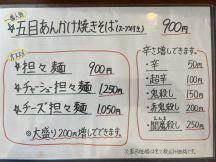 一番人気
☆五目あんかけ焼きそば(スープ付き) 900円
オススメ
☆担々麺 900円
☆チャーシュー担々麺 1,250円
☆チーズ担々麺 1,050円
※大盛り200円増しでできます。
辛さ増しできます。
・辛 50円
・超辛 100円
・鬼殺し 150円
・赤鬼殺し 200円
・閻魔殺し 250円